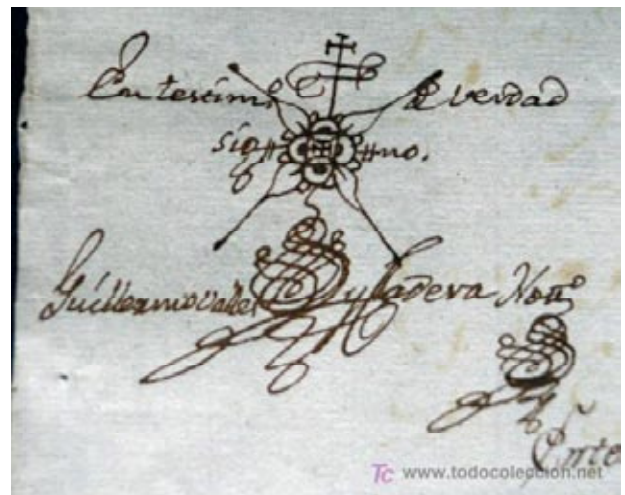 En testim.º de verdad
sig##no.
Guillermo Valle y Ladera Nottº
Ente
Tc www.todocoleccion.net